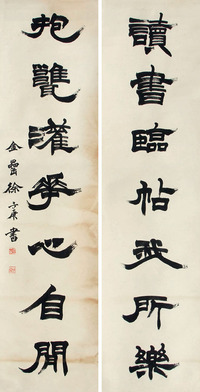 讀書臨帖我所樂
抱甕灌花心自閒
金罍徐三庚書